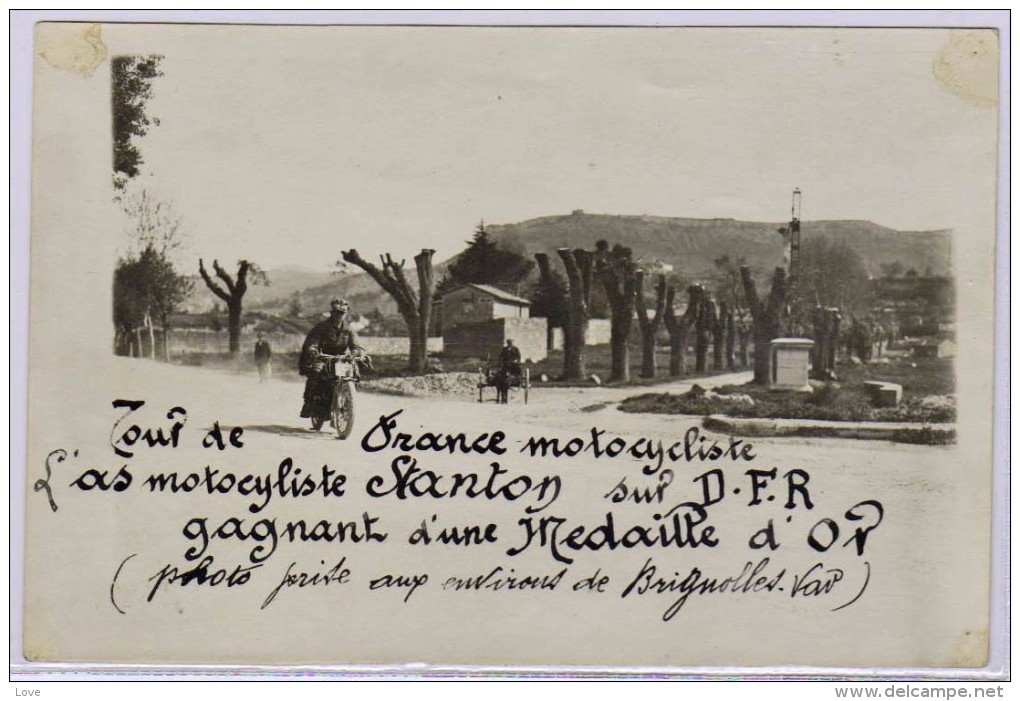 Tour de France motocycliste
L'as motocyliste Stanton sur D.F.R
gagnant d'une Medaille d'Or
(photo prise aux environs de Brignolles. Var)
Love
www.delcampe.net